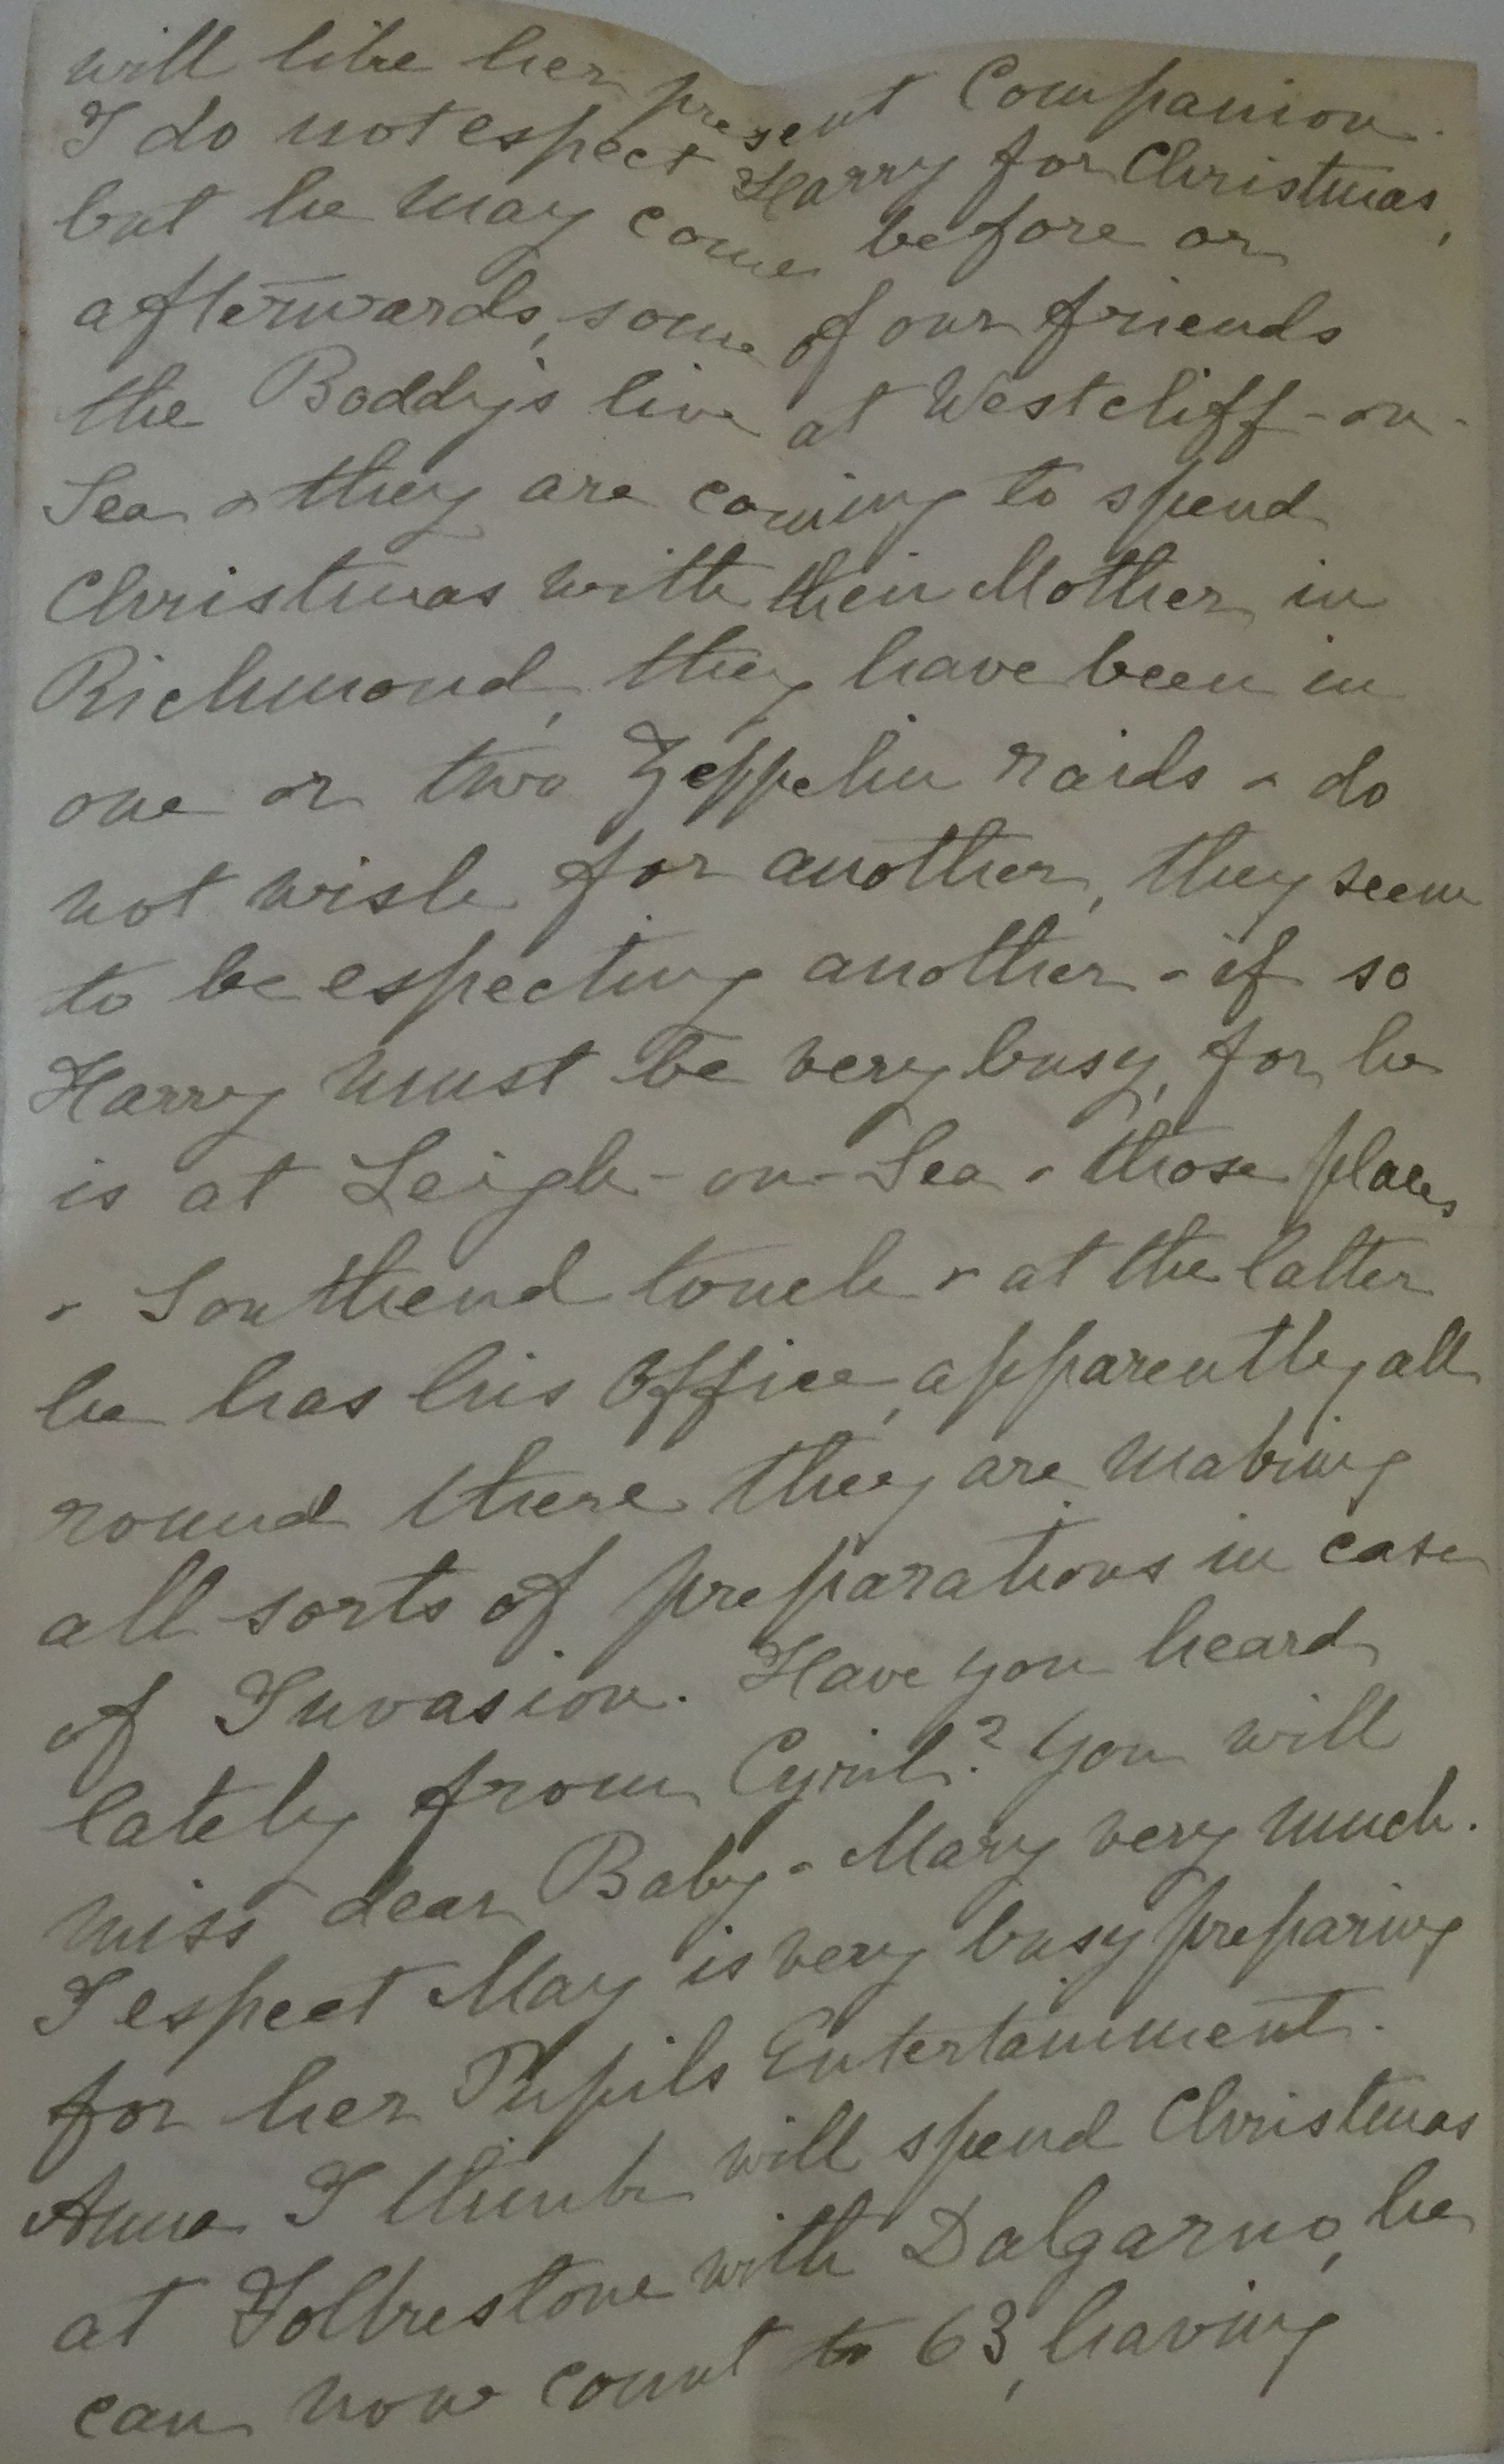 will like her present Companion.
I do not espect Harry for Christmas,
but he may come before or
afterwards, some of our friends
the Boddy's live at Westcliff-on-
Sea & they are coming to spend
Christmas with their Mother in
Richmond, they have been in
one or two Zeppelin raids & do
not wish for another, they seem
to be especting another - if so
Harry must be very busy, for he
is at Leigh-on-Sea & those places
& Southend touch & at the latter
he has his Office, apparently all
round there they are making
all sorts of preparations in case
of Invasion. Have you heard
lately from Cyril? You will
miss dear Baby & Mary very much.
I espect May is very busy preparing
for her Pupils Entertainment.
Anna I think will spend Christmas
at Folkestone with Dalgarno, he
can now count to 63, having